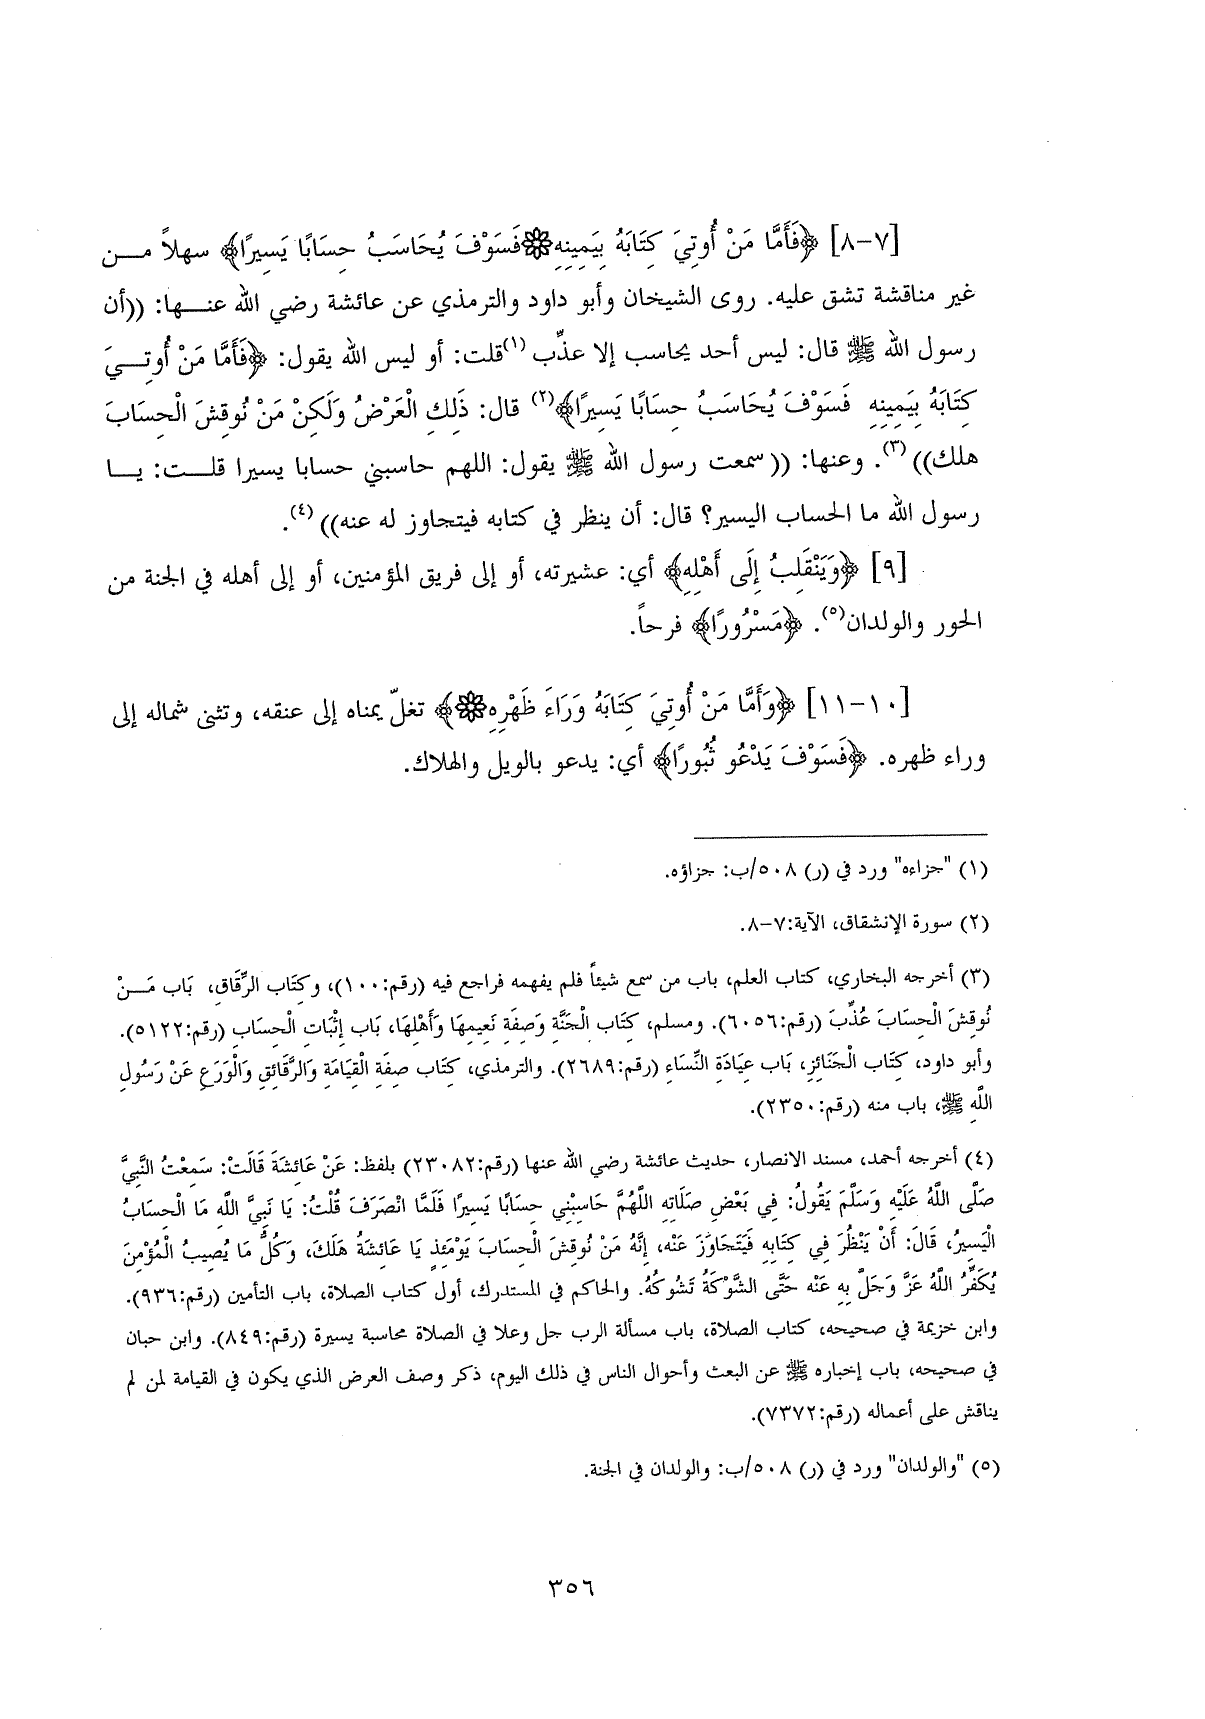 [٧-٨] ﴿فَأَمَّا مَنْ أُوتِيَ كِتَابَهُ بِيَمِينِهِ۞فَسَوْفَ يُحَاسَبُ حِسَابًا يَسِيرًا﴾ سهلاً مـــن
غير مناقشة تشق عليه. روى الشيخان وأبو داود والترمذي عن عائشة رضي الله عنـــها: ((أن
رسول الله ﷺ قال: ليس أحد يحاسب إلا عذِّب (١)قلت: أو ليس الله يقول: ﴿فَأَمَّا مَنْ أُوتِـــيَ
كِتَابَهُ بِيَمِينِهِ فَسَوْفَ يُحَاسَبُ حِسَابًا يَسِيرًا﴾(٢) قال: ذَلِكِ الْعَرْضُ وَلَكِنْ مَنْ نُوقِشَ الْحِسَابَ
هلك))(٣). وعنها: ((سمعت رسول الله ﷺ يقول: اللهم حاسبني حسابا يسيرا قلـــت: يـــا
رسول الله ما الحساب اليسير؟ قال: أن ينظر في كتابه فيتجاوز له عنه)) (٤).
[٩] ﴿وَيَنْقَلِبُ إِلَى أَهْلِهِ﴾ أي: عشيرته، أو إلى فريق المؤمنين، أو إلى أهله في الجنة من
الحور والولدان(٥). ﴿مَسْرُورًا﴾ فرحاً.
[١٠-١١] ﴿وَأَمَّا مَنْ أُوتِيَ كِتَابَهُ وَرَاءَ ظَهْرِهِ۞﴾ تغلّ يمناه إلى عنقه، وتثنى شماله إلى
وراء ظهره. ﴿فَسَوْفَ يَدْعُو ثُبُورًا﴾ أي: يدعو بالويل والهلاك.
(١) "جزاءه" ورد في (ر) ٥٠٨/ب: جزاؤه.
(٢) سورة الإنشقاق، الآية:٧-٨.
(٣) أخرجه البخاري، كتاب العلم، باب من سمع شيئاً فلم يفهمه فراجع فيه (رقم:١٠٠)، وكتَاب الرِّقَاقِ، بَاب مَـــنْ
نُوقِشَ الْحِسَابَ عُذِّبَ (رقم:٦٠٥٦). ومسلم، كِتَاب الْجَنَّةِ وَصِفَةِ نَعِيمِهَا وَأَهْلِهَا، بَاب إِثْبَاتِ الْحِسَابِ (رقم:٥١٢٢).
وأبو داود، كِتَاب الْجَنَائِزِ، بَاب عِيَادَةِ النِّسَاءِ (رقم:٢٦٨٩). والترمذي، كِتَاب صِفَةِ الْقِيَامَةِ وَالرَّقَائِقِ وَالْوَرَعِ عَنْ رَسُولِ
اللَّهِ ﷺ، باب منه (رقم:٢٣٥٠).
(٤) أخرجه أحمد، مسند الانصار، حديث عائشة رضي الله عنها (رقم:٢٣٠٨٢) بلفظ: عَنْ عَائِشَةَ قَالَتْ: سَمِعْتُ النَّبِيَّ
صَلَّى اللَّهُ عَلَيْهِ وَسَلَّمَ يَقُولُ: فِي بَعْضِ صَلَاتِهِ اللَّهُمَّ حَاسِبْنِي حِسَابًا يَسِيرًا فَلَمَّا انْصَرَفَ قُلْتُ: يَا نَبِيَّ اللَّهِ مَا الْحِسَابُ
الْيَسِيرُ، قَالَ: أَنْ يَنْظُرَ فِي كِتَابِهِ فَيَتَجَاوَزَ عَنْه، إِنَّهُ مَنْ نُوقِشَ الْحِسَابَ يَوْمَئِذٍ يَا عَائِشَةُ هَلَكَ، وَكُلُّ مَا يُصِيبُ الْمُؤْمِنَ
يُكَفِّرُ اللَّهُ عَزَّ وَجَلَّ بِهِ عَنْه حَتَّى الشَّوْكَةُ تَشُوكُهُ. والحاكم في المستدرك، أول كتاب الصلاة، باب التأمين (رقم:٩٣٦).
وابن خزيمة في صحيحه، كتاب الصلاة، باب مسألة الرب جل وعلا في الصلاة محاسبة يسيرة (رقم:٨٤٩). وابن حبان
في صحيحه، باب إخباره ﷺ عن البعث وأحوال الناس في ذلك اليوم، ذكر وصف العرض الذي يكون في القيامة لمن لم
يناقش على أعماله (رقم:٧٣٧٢).
(٥) "والولدان" ورد في (ر) ٥٠٨/ب: والولدان في الجنة.
٣٥٦